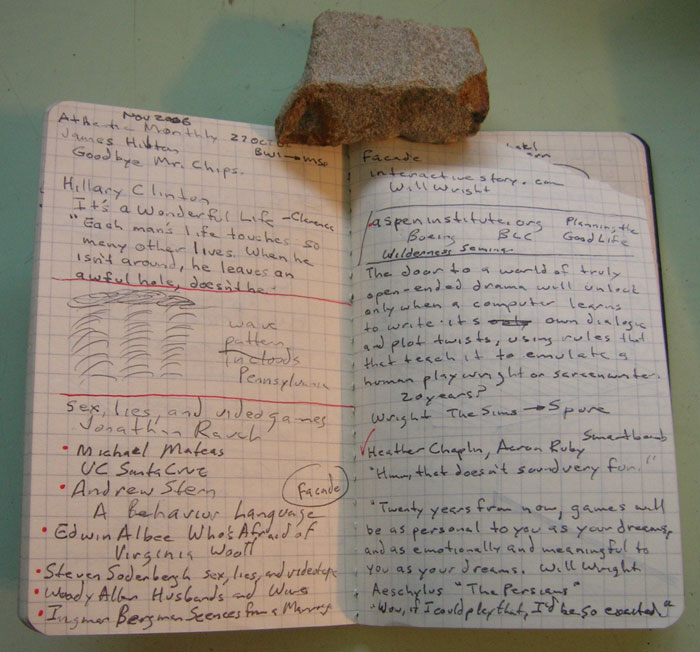 Nov 2006
Athetic Monthly 22 OCT
James Hilton BWI → MSP
Goodbye Mr. Chips.
Hillary Clinton
It's a Wonderful Life - Clarence
"Each man's life touches so
many other lives. When he
isn't around, he leaves an
awful hole, doesn't he
wave
pattern
in clouds
Pennsylvania
Sex, lies, and videogames
Jonathan Rauch
• Michael Mateas
UC Santa Cruz
• Andrew Stern
Facade
A Behavior Language
• Edwin Albee Who's Afraid of
Virginia Woolf
• Steven Soderbergh sex, lies, and videotape
• Woody Allen Husbands and Wives
• Ingmar Bergman Scences from a Marriage
Facade
interactivestory.com
Will Wright
aspeninstitute.org Planning the
Boeing BLC Good Life
Wilderness Seminar
The door to a world of truly
open-ended drama will unlock
only when a computer learns
to write its only own dialogic
and plot twists, using rules that
that teach it to emulate a
human playwright or screenwriter.
20 years?
Wright The Sims → Spore
Smartbomb
Heather Chaplin, Aaron Ruby
"Hmm, that doesn't sound very fun."
"Twenty years from now, games will
be as personal to you as your dreams,
and as emotionally and meaningful to
you as your dreams. Will Wright
Aeschylus "The Persians"
"Wow, if I could play that, I'd be so excited."